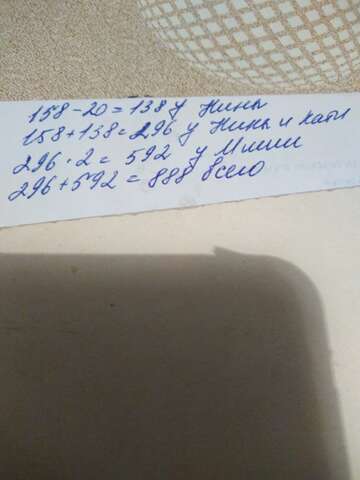 158-20=138 у Нины
158+138=296 у Нины и Кати
296·2=592 у Миши
296+592=888 всего